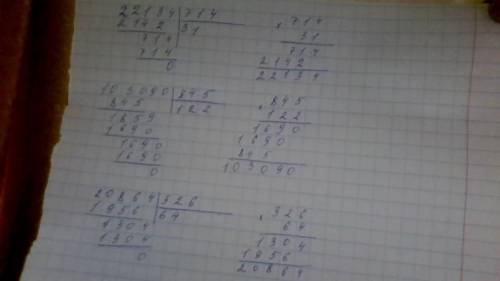 22134 | 714
2142 | 31
714
714
0
× 714
31
714
2142
22134
103090 | 845
845 | 122
1859
1690
1690
1690
0
× 845
122
1690
1690
845
103090
20864 | 326
1956 | 64
1304
1304
0
× 326
64
1304
1956
20864